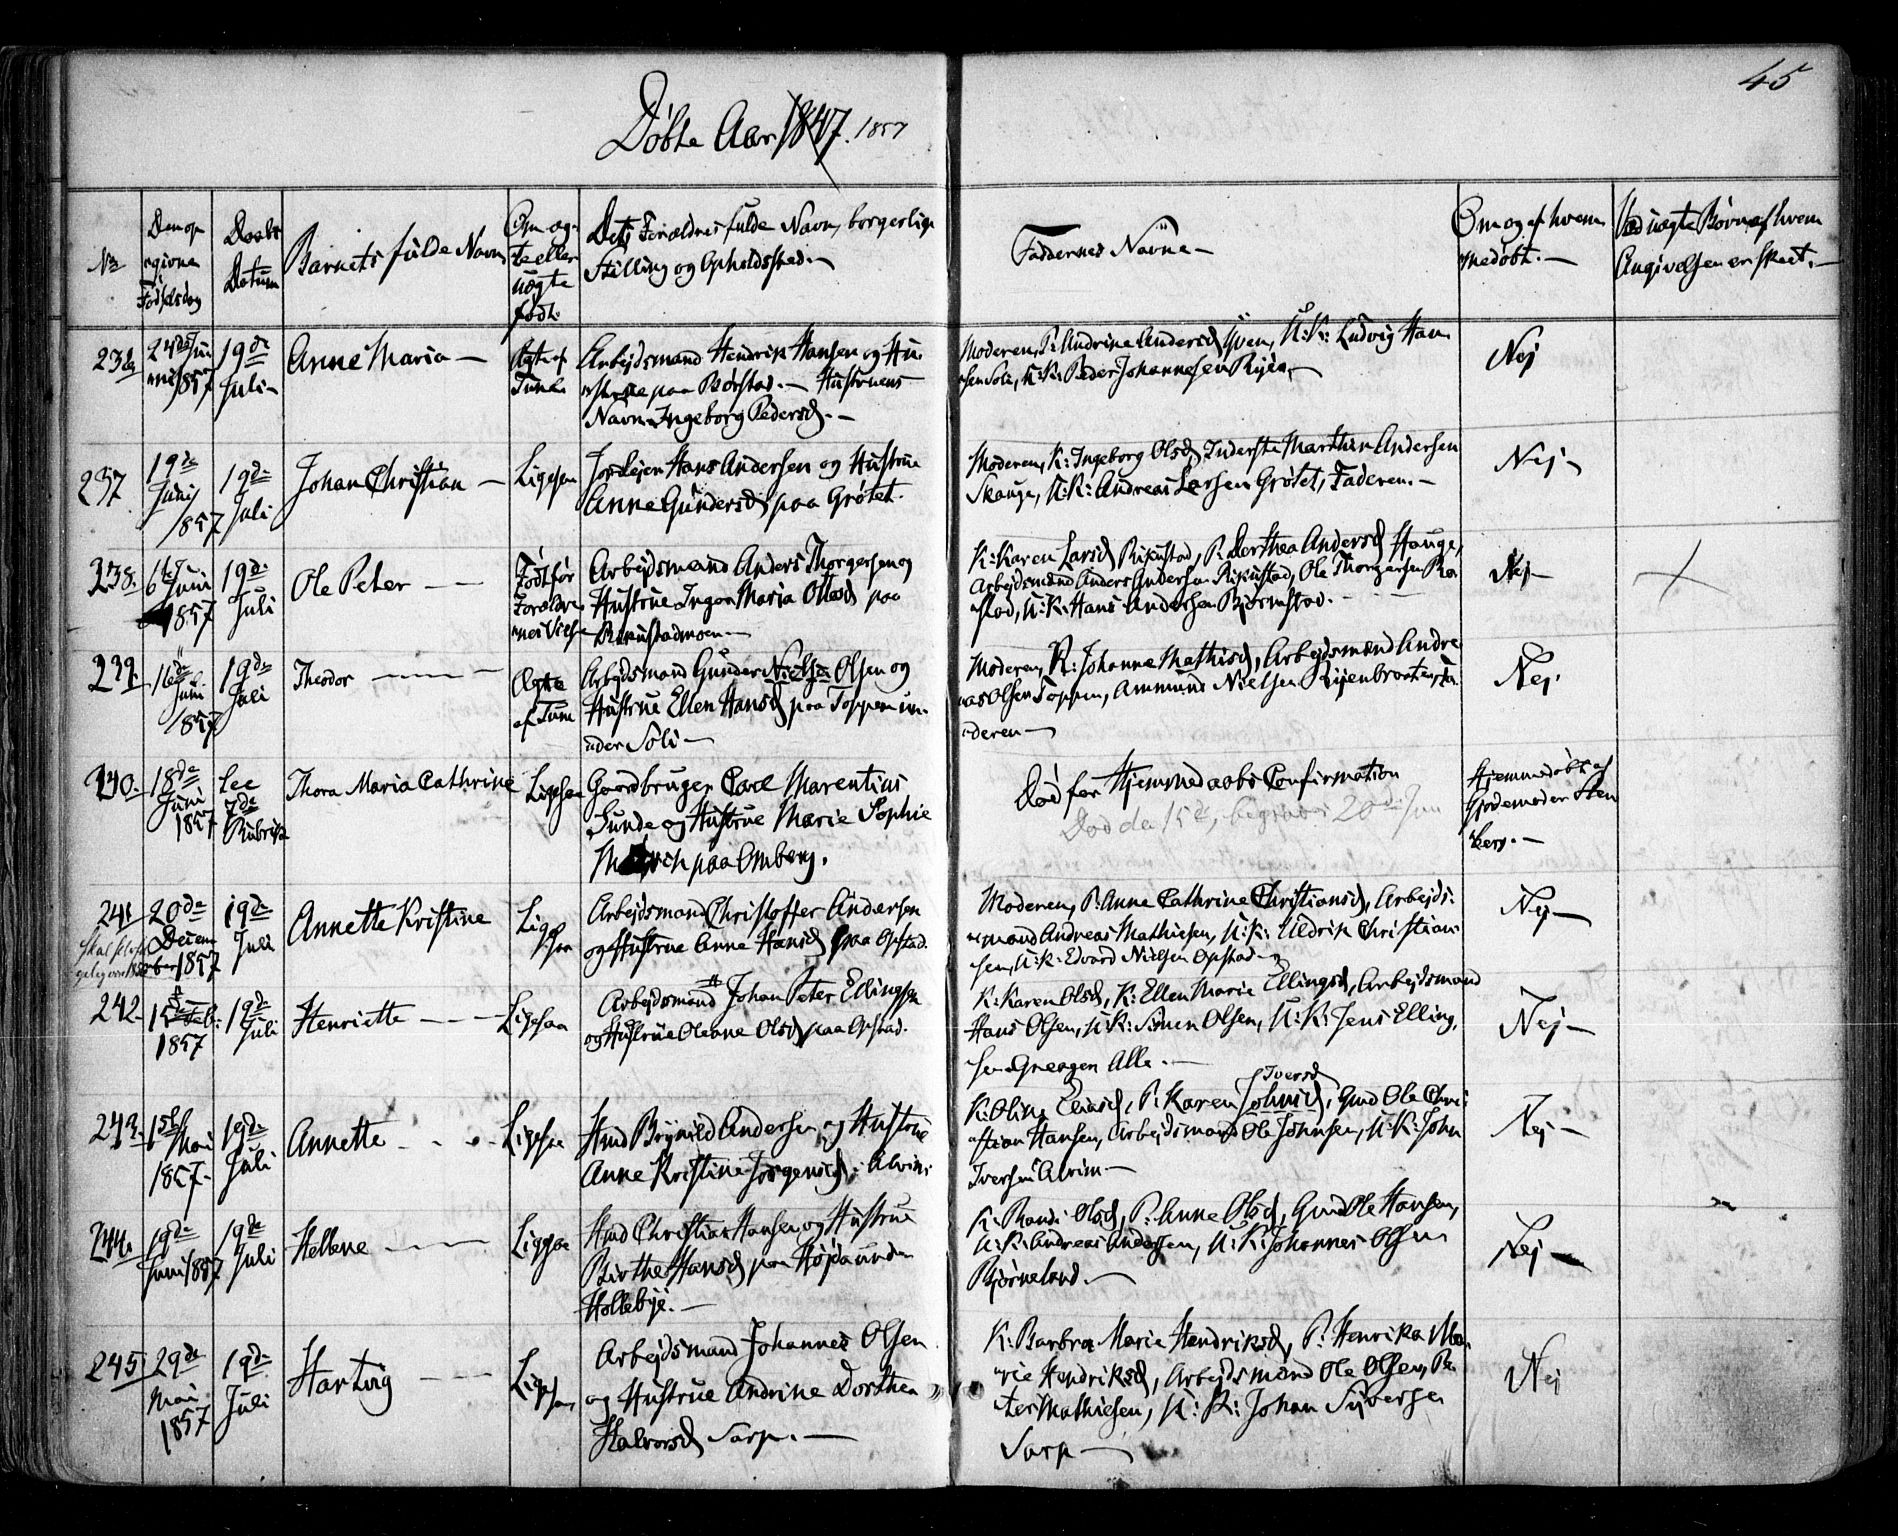 45
Døbte Aar 1847. 1857
No
Den op
egivne
Fødselsdag
Daabs
Datum
Barnets fulde Navn
Om æg-
te eller
uægte
født.
Dets Forældres fulde Navn, borgerlige
Stilling og Opholdssted.
Faddernes Navne
Om og af hvem
hjemdøbt.
Ved uægte Børn af hvem
Angivelsen er skeet.
236
24de Ju
ni 1857
19de
Juli
Anne Maria
Ægte af
Tune
Arbejdsmand Hendrik Hansen og Hu-
strue paa Børstad. Hustruens
Navn Ingeborg Pedersd.
Moderen, P. Andrine Andersd Gren, U:K: Ludvig Han
sen Soli, U:K: Peder Johannesen Ryen
Nej
237
19de
Juni
1857
19de
Juli
Johan Christian
Ligesaa
Jordlejer Hans Andersen og Hustrue
Anne Gundersd paa Grøtet.
Moderen, K: Ingeborg Olsd, Inderste Marthin Andersen
Skauge, U:K: Andreas Larsen Grøtet, Faderen.
Nej
238.
6 Juni
1857
19de
Juli
Ole Peter
Født før
Forældre
nes Vielse
Arbejdsmand Anders Thorgersen og
Hustrue Inger Maria Ottesd paa
Rikustadmoen
K: Karen Larsd Rikustad, P. Dorthea Andersd Hauge,
Arbejdsmænd Anders Andersen Rikustad, Ole Thorgersen
stad, U:K: Hans Andersen Bjørnstad.
Nej
239.
16de
Juni
1857
19de
Juli
Theodor
Ægte
af Tune
Arbejdsmand Gunder Nielsen Olsen og
Hustrue Ellen Hansd paa Toppen un-
der Soli
Moderen, K: Johanne Mathisd, Arbejdsmænd Andre
as Olsen Toppen, Ammund Nielsen Ryenbraaten, Fa
deren
Nej.
240.
18de
Juni
1857
See
7de
Rubrik
Thora Maria Cathrine
Ligesaa
Gaardbruger Carl Marentius
Sunde og Hustrue Marie Sophie
paa Omberg.
Død før Hjemmedaabs Confirmation
Død de 15de, begravet 20de Jun
Hjemmedøbt af
Gjordemoder Sten
berg.
241
20de
Decem
ber 1857
19de
Juli
Annette Kristine
Ligesaa
Arbejdsmand Christoffer Andersen
og Hustrue Anne Hansd paa Opstad.
Moderen, P. Anne Cathrine Christiansd, Arbejds-
mand Andreas Mathiesen, U:K: Uldrik Christian
sen, U:K: Edvard Nielsen Opstad
Nej
242
15de Feb:
1857
19de
Juli
Henriette
Ligesaa
Arbejdsmand Johan Peter Ellingsen
og Hustrue Oleane Olsd paa Opstad.
K: Karen Olsd, K: Ellen Marie Ellingsd, Arbejdsmænd
Hans Olsen, U:K: Simen Olsen, U:K: Jens Elling,
sen Alle.
Nej
243.
15de
Mai
1857
19de
Juli
Annette
Ligesaa
Hmd Brynild Andersen og Hustrue
Anne Kristine Jørgensd: Alvim
Iversd
K: Oline Eliasd, P. Karen Johnsd, Gmd Ole Chri
stian Hansen, Arbejdsmand Ole Johnsen, U:K: John
Iversen Alvim
Nej
244.
19de
Juni 1857
19de
Juli
Hellene
Ligesaa
Hmd Christian Hansen og Hustrue
Birthe Hansd paa Højda under
Hollebye.
K: Randi Olsd, P: Anne Olsd, Gmd Ole Hansen,
U:K: Andreas Andersen, U:K: Johannes Olsen
Bjørneland.
Nej
245
29de
Mai
1857
19de
Juli
Hartvig
Ligesaa
Arbejdsmand Johannes Olsen
og Hustrue Andrine Dorthea
Halvorsd Sarp.
K: Barbra Marie Hendriksd, P: Henrika Ma-
rie Hendriksd, Arbejdsmænd Ole Olsen, Pe
ter Mathiesen, U:K: Johan Syversen
Sarp
Nej